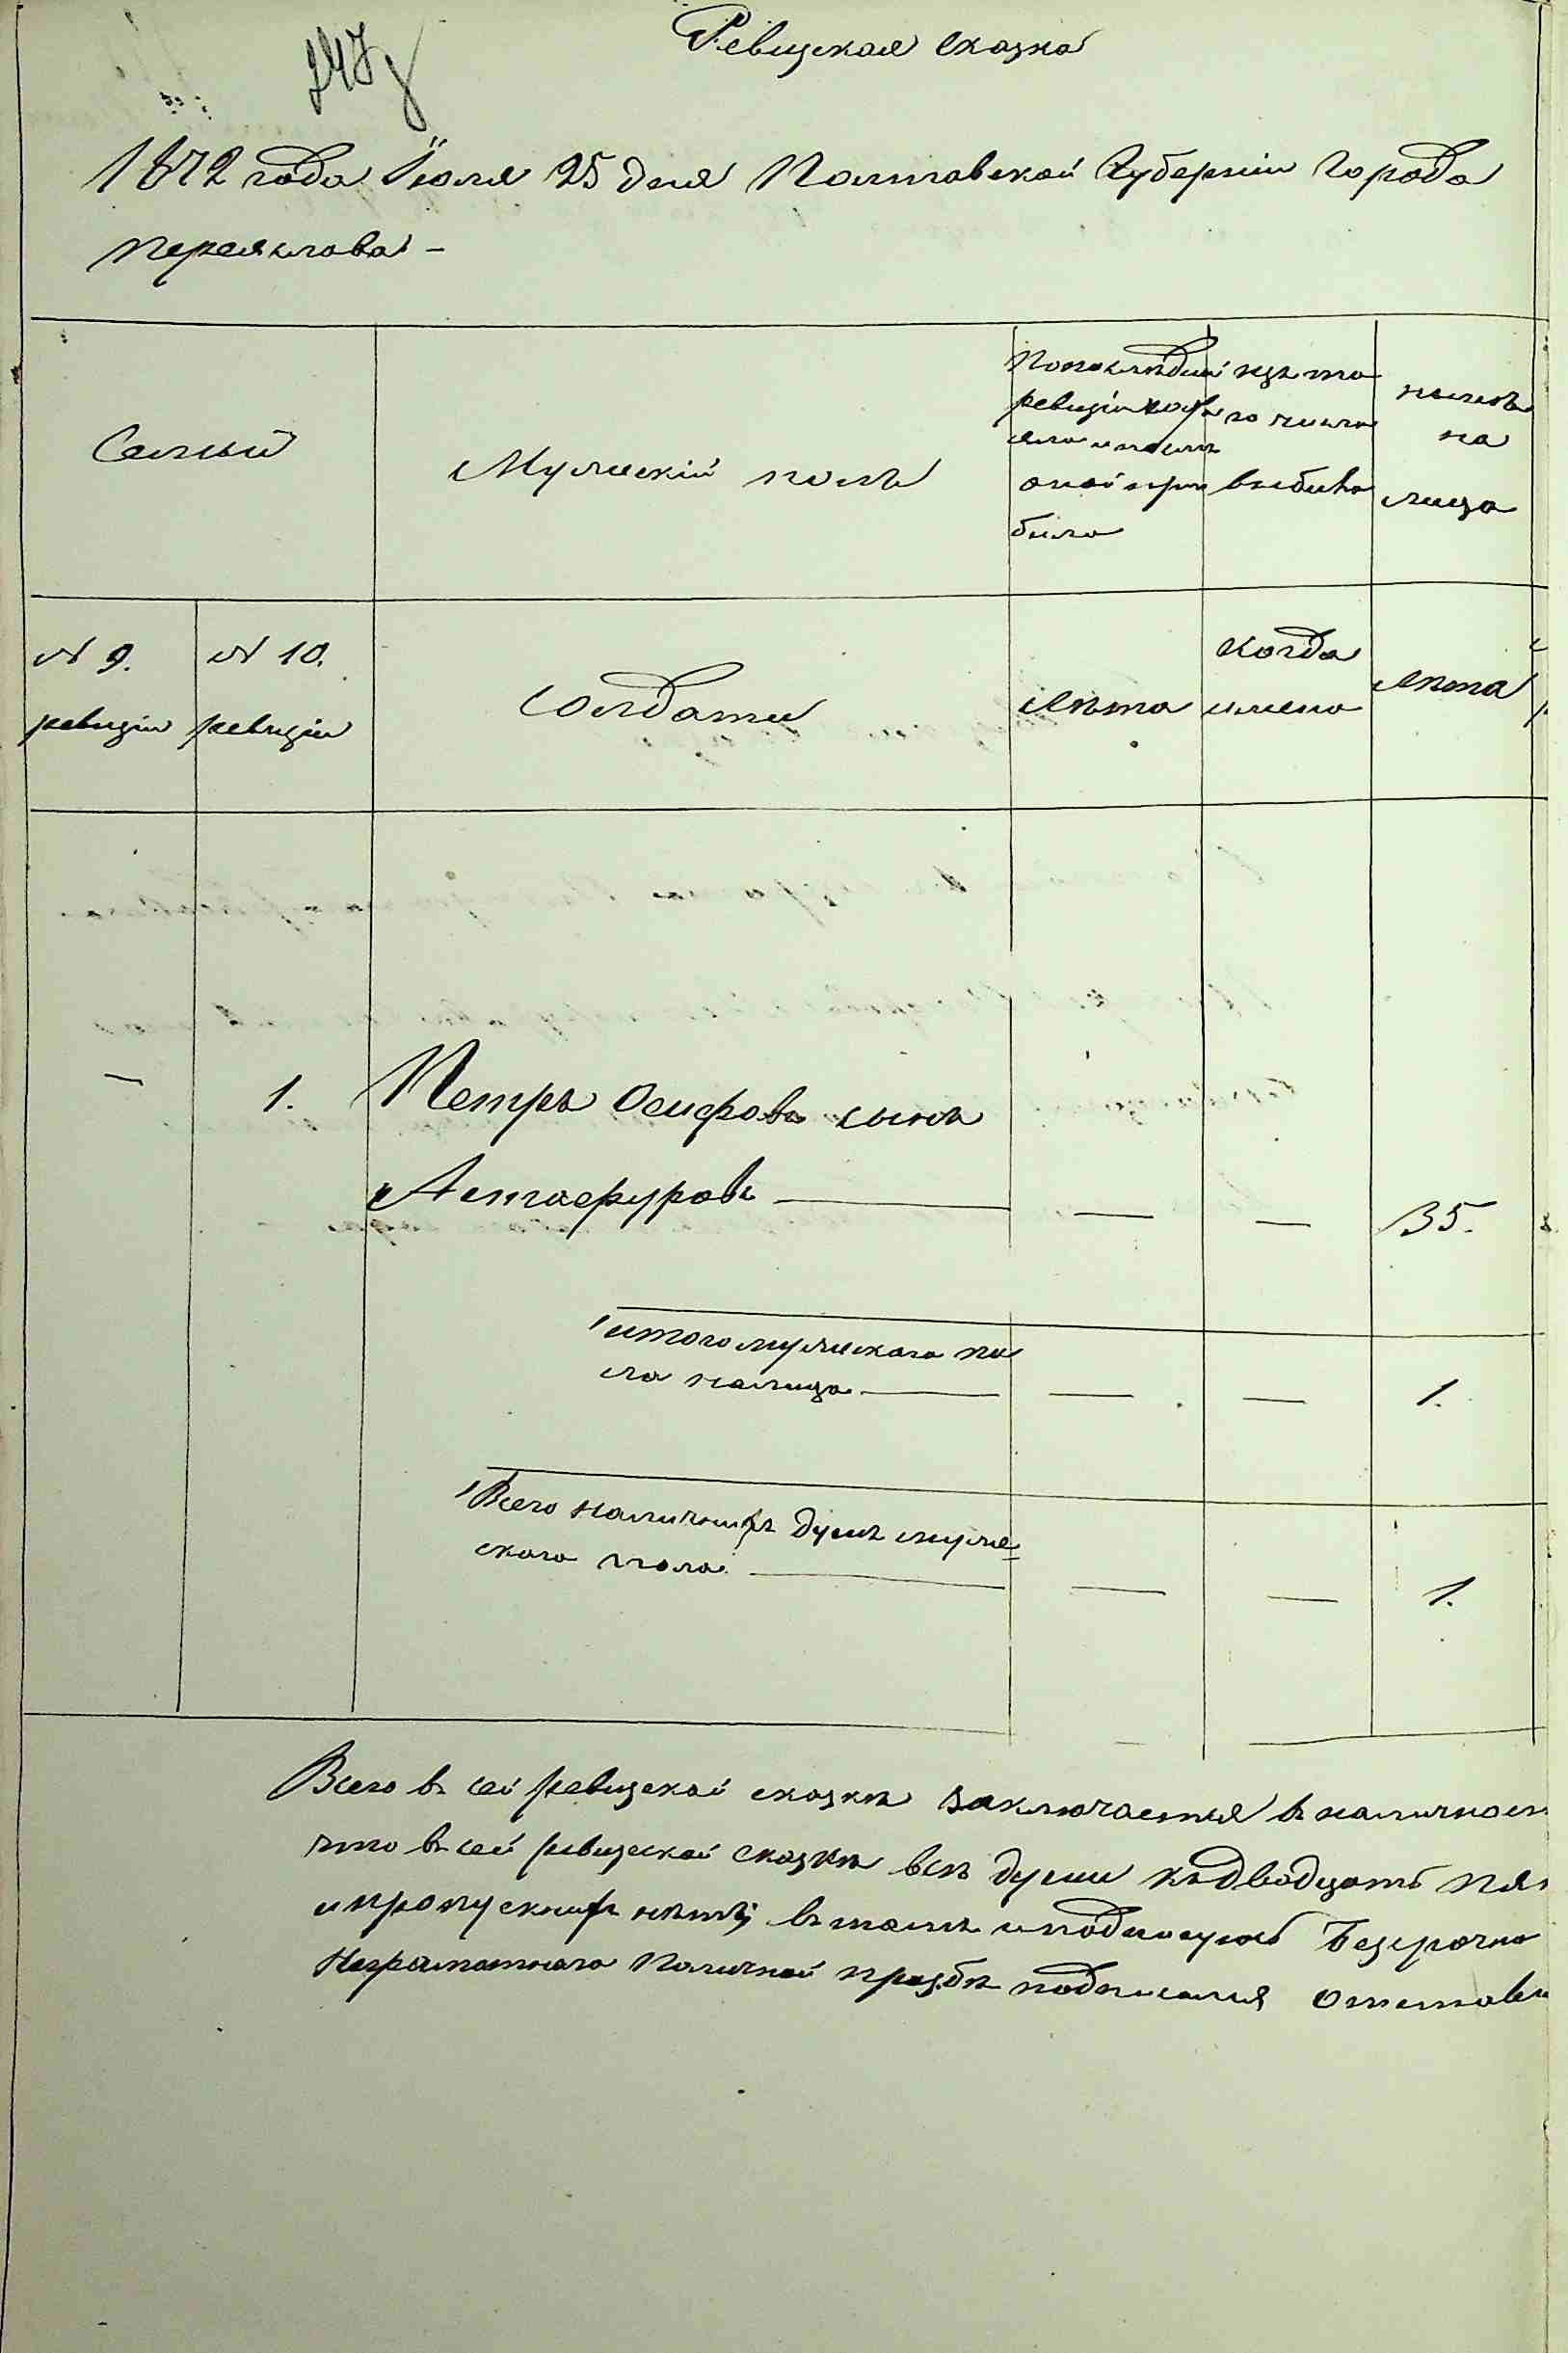 Ревизская сказка
1872 года Июля 25 дня Полтавской Губерніи Города
Переяслова -
Семьи
Мужескій полъ
По последней
ревизіи состо
яло и послѣ
оной при
было
изъ то
го числа
выбыло
нынѣ
на
лицо
№ 9.
ревизіи
№ 10.
ревизіи
Солдаты
Лѣта
когда
имено
Лѣта
—
1.
Петръ Осифовъ сынъ
Астафуровъ — — — 35.
итого мужескаго по
ла налицо — — — 1.
Всего наличныхъ душъ муже=
скаго пола — — — 1.
Всего въ сей ревизской сказкѣ заключается въ наличност
что въ сей ревизской сказкѣ всѣ души къ двадцать пят
и пропускныхъ нѣтъ; въ томъ и подписуюсь Безсрочно
Неграмотнаго По личной прозбѣ подписался Отставн